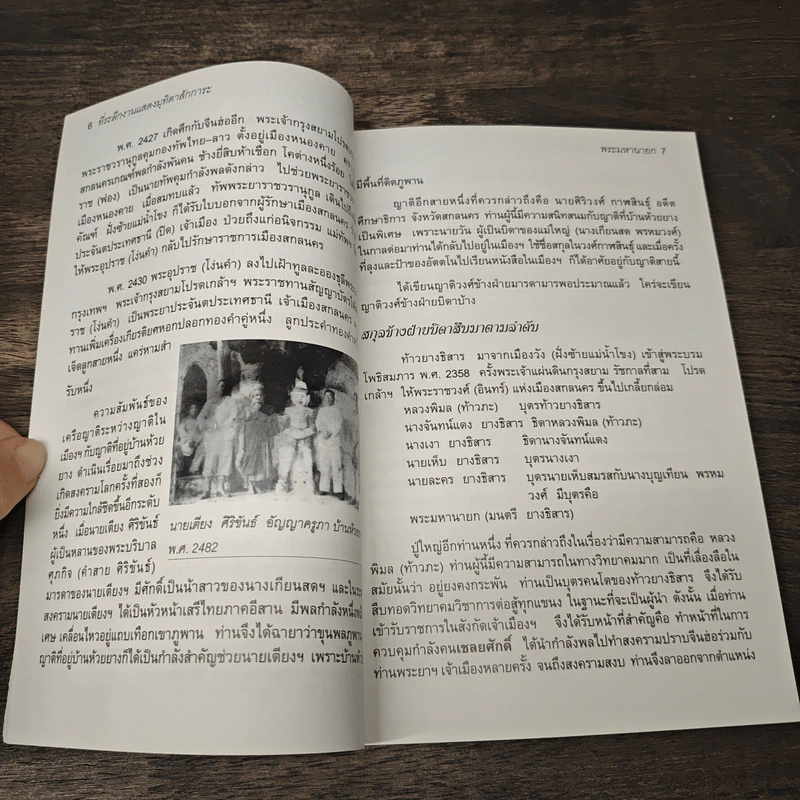 6 ที่ระลึกงานแสดงมุทิตาสักการะ
พ.ศ. 2427 เกิดศึกกับจีนฮ่ออีก พระเจ้ากรุงสยามโปรดเกล้าฯ
พระราชวรานุกูลคุมกองทัพไทย-ลาว ตั้งอยู่เมืองหนองคาย
สกลนครเกณฑ์พลกำลังพันคน ช้างยี่สิบห้าเชือก โคต่างหนึ่งร้อย
ราช (ฟอง) เป็นนายทัพคุมกำลังพลดังกล่าว ไปช่วยพระยาราชวรา
เมืองหนองคาย เมื่อสมทบแล้ว ทัพพระยาราชวรานุกูล เดินไปถึง
คัณฑ์ ฝั่งซ้ายแม่น้ำโขง ก็ได้รับใบบอกจากผู้รักษาเมืองสกลนคร
ประจันตประเทศธานี (ปิด) เจ้าเมือง ป่วยถึงแก่อนิจกรรม แม่ทัพ
ให้พระอุปราช (โง่นคำ) กลับไปรักษาราชการเมืองสกลนคร
พ.ศ. 2430 พระอุปราช (โง่นคำ) ลงไปเฝ้าทูลละอองธุลีพระ
กรุงเทพฯ พระเจ้ากรุงสยามโปรดเกล้าฯ พระราชทานสัญญาบัตร
ราช (โง่นคำ) เป็นพระยาประจันตประเทศธานี เจ้าเมืองสกลนคร
ทานเพิ่มเครื่องเกียรติยศหอกปลอกทองคำคู่หนึ่ง ลูกประคำทองคำ
เจ็ดลูกสายหนึ่ง แคร่หามสำ
รับหนึ่ง
ความสัมพันธ์ของ
เครือญาติระหว่างญาติใน
เมืองฯ กับญาติที่อยู่บ้านห้วย
ยาง ดำเนินเรื่อยมาถึงช่วง
เกิดสงครามโลกครั้งที่สองก็
ยิ่งมีความใกล้ชิดขึ้นอีกระดับ
หนึ่ง เมื่อนายเตียง ศิริขันธ์
ผู้เป็นหลานของพระบริบาล
ศุภกิจ (คำสาย ศิริขันธ์)
นายเตียง ศิริขันธ์ อัญญาครูภา บ้านห้วย
พ.ศ. 2482
มารดาของนายเตียงฯ มีศักดิ์เป็นน้าสาวของนางเกียนสดฯ และใน
สงครามนายเตียงฯ ได้เป็นหัวหน้าเสรีไทยภาคอีสาน มีพลกำลังหนึ่ง
เศษ เคลื่อนไหวอยู่แถบเทือกเขาภูพาน ท่านจึงได้ฉายาว่าขุนพลภูพาน
ญาติที่อยู่บ้านห้วยยางก็ได้เป็นกำลังสำคัญช่วยนายเตียงฯ เพราะบ้านห้วย
พระมหานายก 7
มีพื้นที่ติดภูพาน
ญาติอีกสายหนึ่งที่ควรกล่าวถึงคือ นายศิริวงศ์ กาพสินธุ์ อดีต
ศึกษาธิการ จังหวัดสกลนคร ท่านผู้นี้มีความสนิทสนมกับญาติที่บ้านห้วยยาง
เป็นพิเศษ เพราะนายวัน ผู้เป็นบิดาของแม่ใหญ่ (นางเกียนสด พรหมวงศ์)
ในกาลต่อมาท่านได้กลับไปอยู่ในเมืองฯ ใช้ชื่อสกุลในวงศ์กาพสินธุ์ และเมื่อครั้ง
ที่ลุงและป้าของอัตตโนไปเรียนหนังสือในเมืองฯ ก็ได้อาศัยอยู่กับญาติสายนี้
ได้เขียนญาติวงศ์ข้างฝ่ายมารดามาพอประมาณแล้ว ใคร่จะเขียน
ญาติวงศ์ข้างฝ่ายบิดาบ้าง
สกุลข้างฝ่ายบิดาสืบมาตามลำดับ
ท้าวยางธิสาร มาจากเมืองวัง (ฝั่งซ้ายแม่น้ำโขง) เข้าสู่พระบรม
โพธิสมภาร พ.ศ. 2358 ครั้งพระเจ้าแผ่นดินกรุงสยาม รัชกาลที่สาม โปรด
เกล้าฯ ให้พระราชวงศ์ (อินทร์) แห่งเมืองสกลนคร ขึ้นไปเกลี้ยกล่อม
หลวงพิมล (ท้าวภะ) บุตรท้าวยางธิสาร
นางจันทน์แดง ยางธิสาร ธิดาหลวงพิมล (ท้าวภะ)
นางเงา ยางธิสาร ธิดานางจันทน์แดง
นายเห็บ ยางธิสาร บุตรนางเงา
นายละคร ยางธิสาร บุตรนายเห็บสมรสกับนางบุญเทียน พรหม
วงศ์ มีบุตรคือ
พระมหานายก (มนตรี ยางธิสาร)
ปู่ใหญ่อีกท่านหนึ่ง ที่ควรกล่าวถึงในเรื่องว่ามีความสามารถคือ หลวง
พิมล (ท้าวภะ) ท่านผู้นี้มีความสามารถในทางวิทยาคมมาก เป็นที่เลื่องลือใน
สมัยนั้นว่า อยู่ยงคงกระพัน ท่านเป็นบุตรคนโตของท้าวยางธิสาร จึงได้รับ
สืบทอดวิทยาคมวิชาการต่อสู้ทุกแขนง ในฐานะที่จะเป็นผู้นำ ดังนั้น เมื่อท่าน
เข้ารับราชการในสังกัดเจ้าเมืองฯ จึงได้รับหน้าที่สำคัญคือ ทำหน้าที่ในการ
ควบคุมกำลังคนเชลยศักดิ์ ได้นำกำลังพลไปทำสงครามปราบจีนฮ่อร่วมกับ
ท่านพระยาฯ เจ้าเมืองหลายครั้ง จนถึงสงครามสงบ ท่านจึงลาออกจากตำแหน่ง